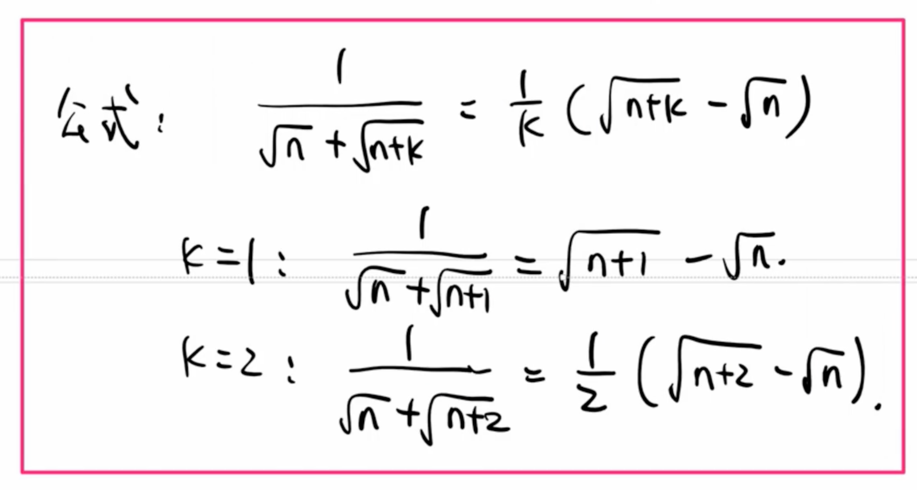 公式: 1/(√n + √(n+k)) = 1/k (√(n+k) - √n)
k=1: 1/(√n + √(n+1)) = √(n+1) - √n.
k=2: 1/(√n + √(n+2)) = 1/2 (√(n+2) - √n).